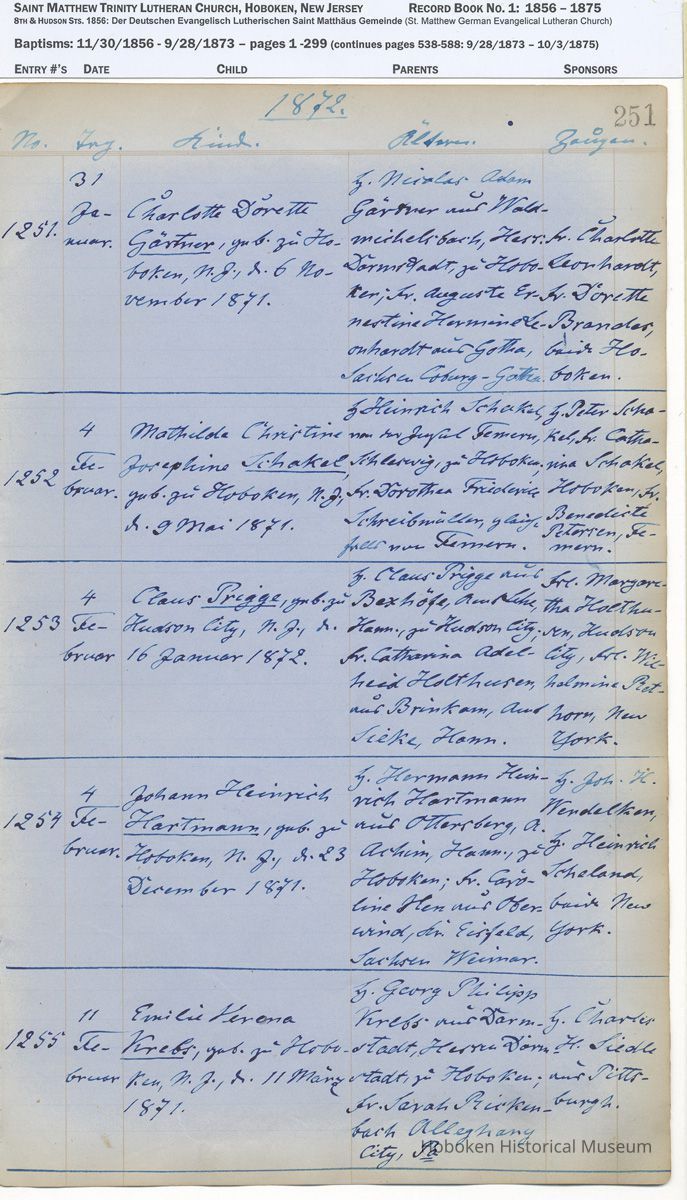 SAINT MATTHEW TRINITY LUTHERAN CHURCH, HOBOKEN, NEW JERSEY RECORD BOOK NO. 1: 1856 – 1875
8TH & HUDSON STS. 1856: Der Deutschen Evangelisch Lutherischen Saint Matthäus Gemeinde (St. Matthew German Evangelical Lutheran Church)
Baptisms: 11/30/1856 - 9/28/1873 – pages 1 -299 (continues pages 538-588: 9/28/1873 – 10/3/1875)
ENTRY #'S DATE CHILD PARENTS SPONSORS
1872.
251
No. Tag. Kind. Ältern. Zeugen.
1251.
31
Ja-
nuar.
Charlotte Dorette
Gärtner, geb. zu Ho-
boken, N. J., d. 6 No-
vember 1871.
H. Nicolas Adam
Gärtner aus Wald-
michelbach, Hess.
Darmstadt, zu Hobo-
ken; Fr. Auguste Er-
nestine Hermine Le-
onhardt aus Gotha,
Sachsen Coburg-Gotha.
Fr. Charlotte
Leonhardt,
Fr. Dorette
Brandes,
beide Ho-
boken.
1252
4
Fe-
bruar.
Mathilde Christine
Josephine Schakel,
geb. zu Hoboken, N. J.,
d. 9 Mai 1871.
H. Heinrich Schakel,
von der Insel Femern,
Schleswig, zu Hoboken;
Fr. Dorothea Friederike
Schreibmüller, gleich-
falls von Femern.
H. Peter Scha-
kel, Fr. Catha-
rina Schakel,
Hoboken, Fr.
Benedicte
Petersen, Fe-
mern.
1253
4
Fe-
bruar
Claus Prigge, geb. zu
Hudson City, N. J., d.
16 Januar 1872.
H. Claus Prigge aus
Bexhöfe, Amt Lehe,
Hann., zu Hudson City;
Fr. Catharina Adel-
heid Holthusen,
aus Brinkam, Amt
Hann.
Frl. Margare-
tha Holthu-
sen, Hudson
City, Frl. Wil-
helmine
horn, New
York.
1254
4
Fe-
bruar.
Johann Heinrich
Hartmann, geb. zu
Hoboken, N. J., d. 23
December 1871.
H. Hermann Hein-
rich Hartmann
aus Ottersberg, A.
Achim, Hann., zu
Hoboken; Fr. Caro-
line Hen aus Ober-
wind, Eisfeld,
Sachsen Weimar.
H. Joh. H.
Wendelken,
H. Heinrich
Schaland,
beide New
York.
1255
11
Fe-
bruar
Emilie Verena
Krebs, geb. zu Hobo-
ken, N. J., d. 11 März
1871.
H. Georg Philipp
Krebs aus Darm-
stadt, Hessen Darm-
stadt, zu Hoboken;
Fr. Sarah Ricken-
bach Alleghany
City, Pa
H. Charles
H. Siedle
aus Pitts-
burgh.
Hoboken Historical Museum